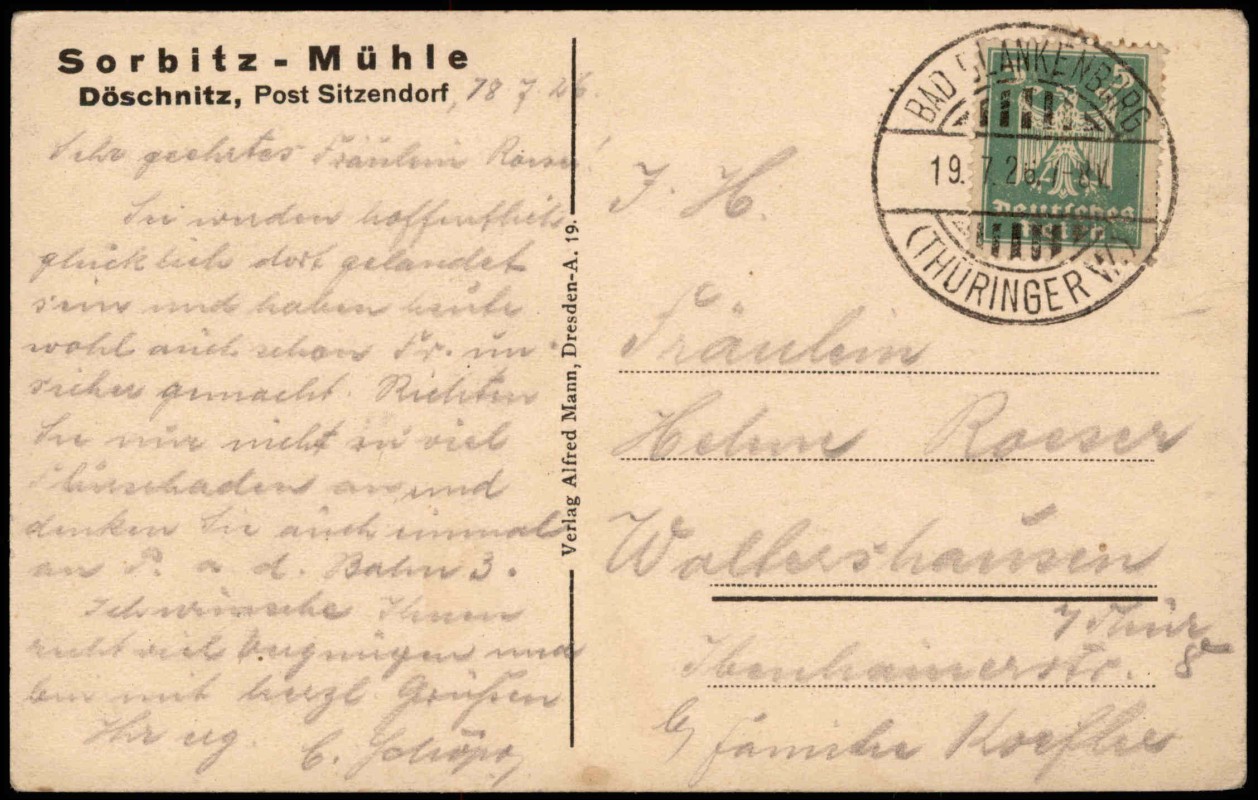 Sorbitz-Mühle
Döschnitz, Post Sitzendorf, 18 7 26.
Sehr geehrtes Fräulein Roeser!
Sie werden hoffentlich
glücklich dort gelandet
sein und haben heute
wohl auch schon Fr. un-
sicher gemacht. Richten
Sie nur nicht zu viel
Flurschaden an und
denken Sie auch einmal
an P. a. d. Bahn 3.
Ich wünsche Ihnen
recht viel Vergnügen und
bin mit herzl. Grüßen
Ihr erg.
Verlag Alfred Mann, Dresden-A. 19.
BAD BLANKENBURG
19. 7. 26. 7-8V.
(THÜRINGER W.)
5
Deutsches
Reich
Fräulein
Helene Roeser
Waltershausen
i/Thür
Ibenhainerstr. 8
b/ Familie